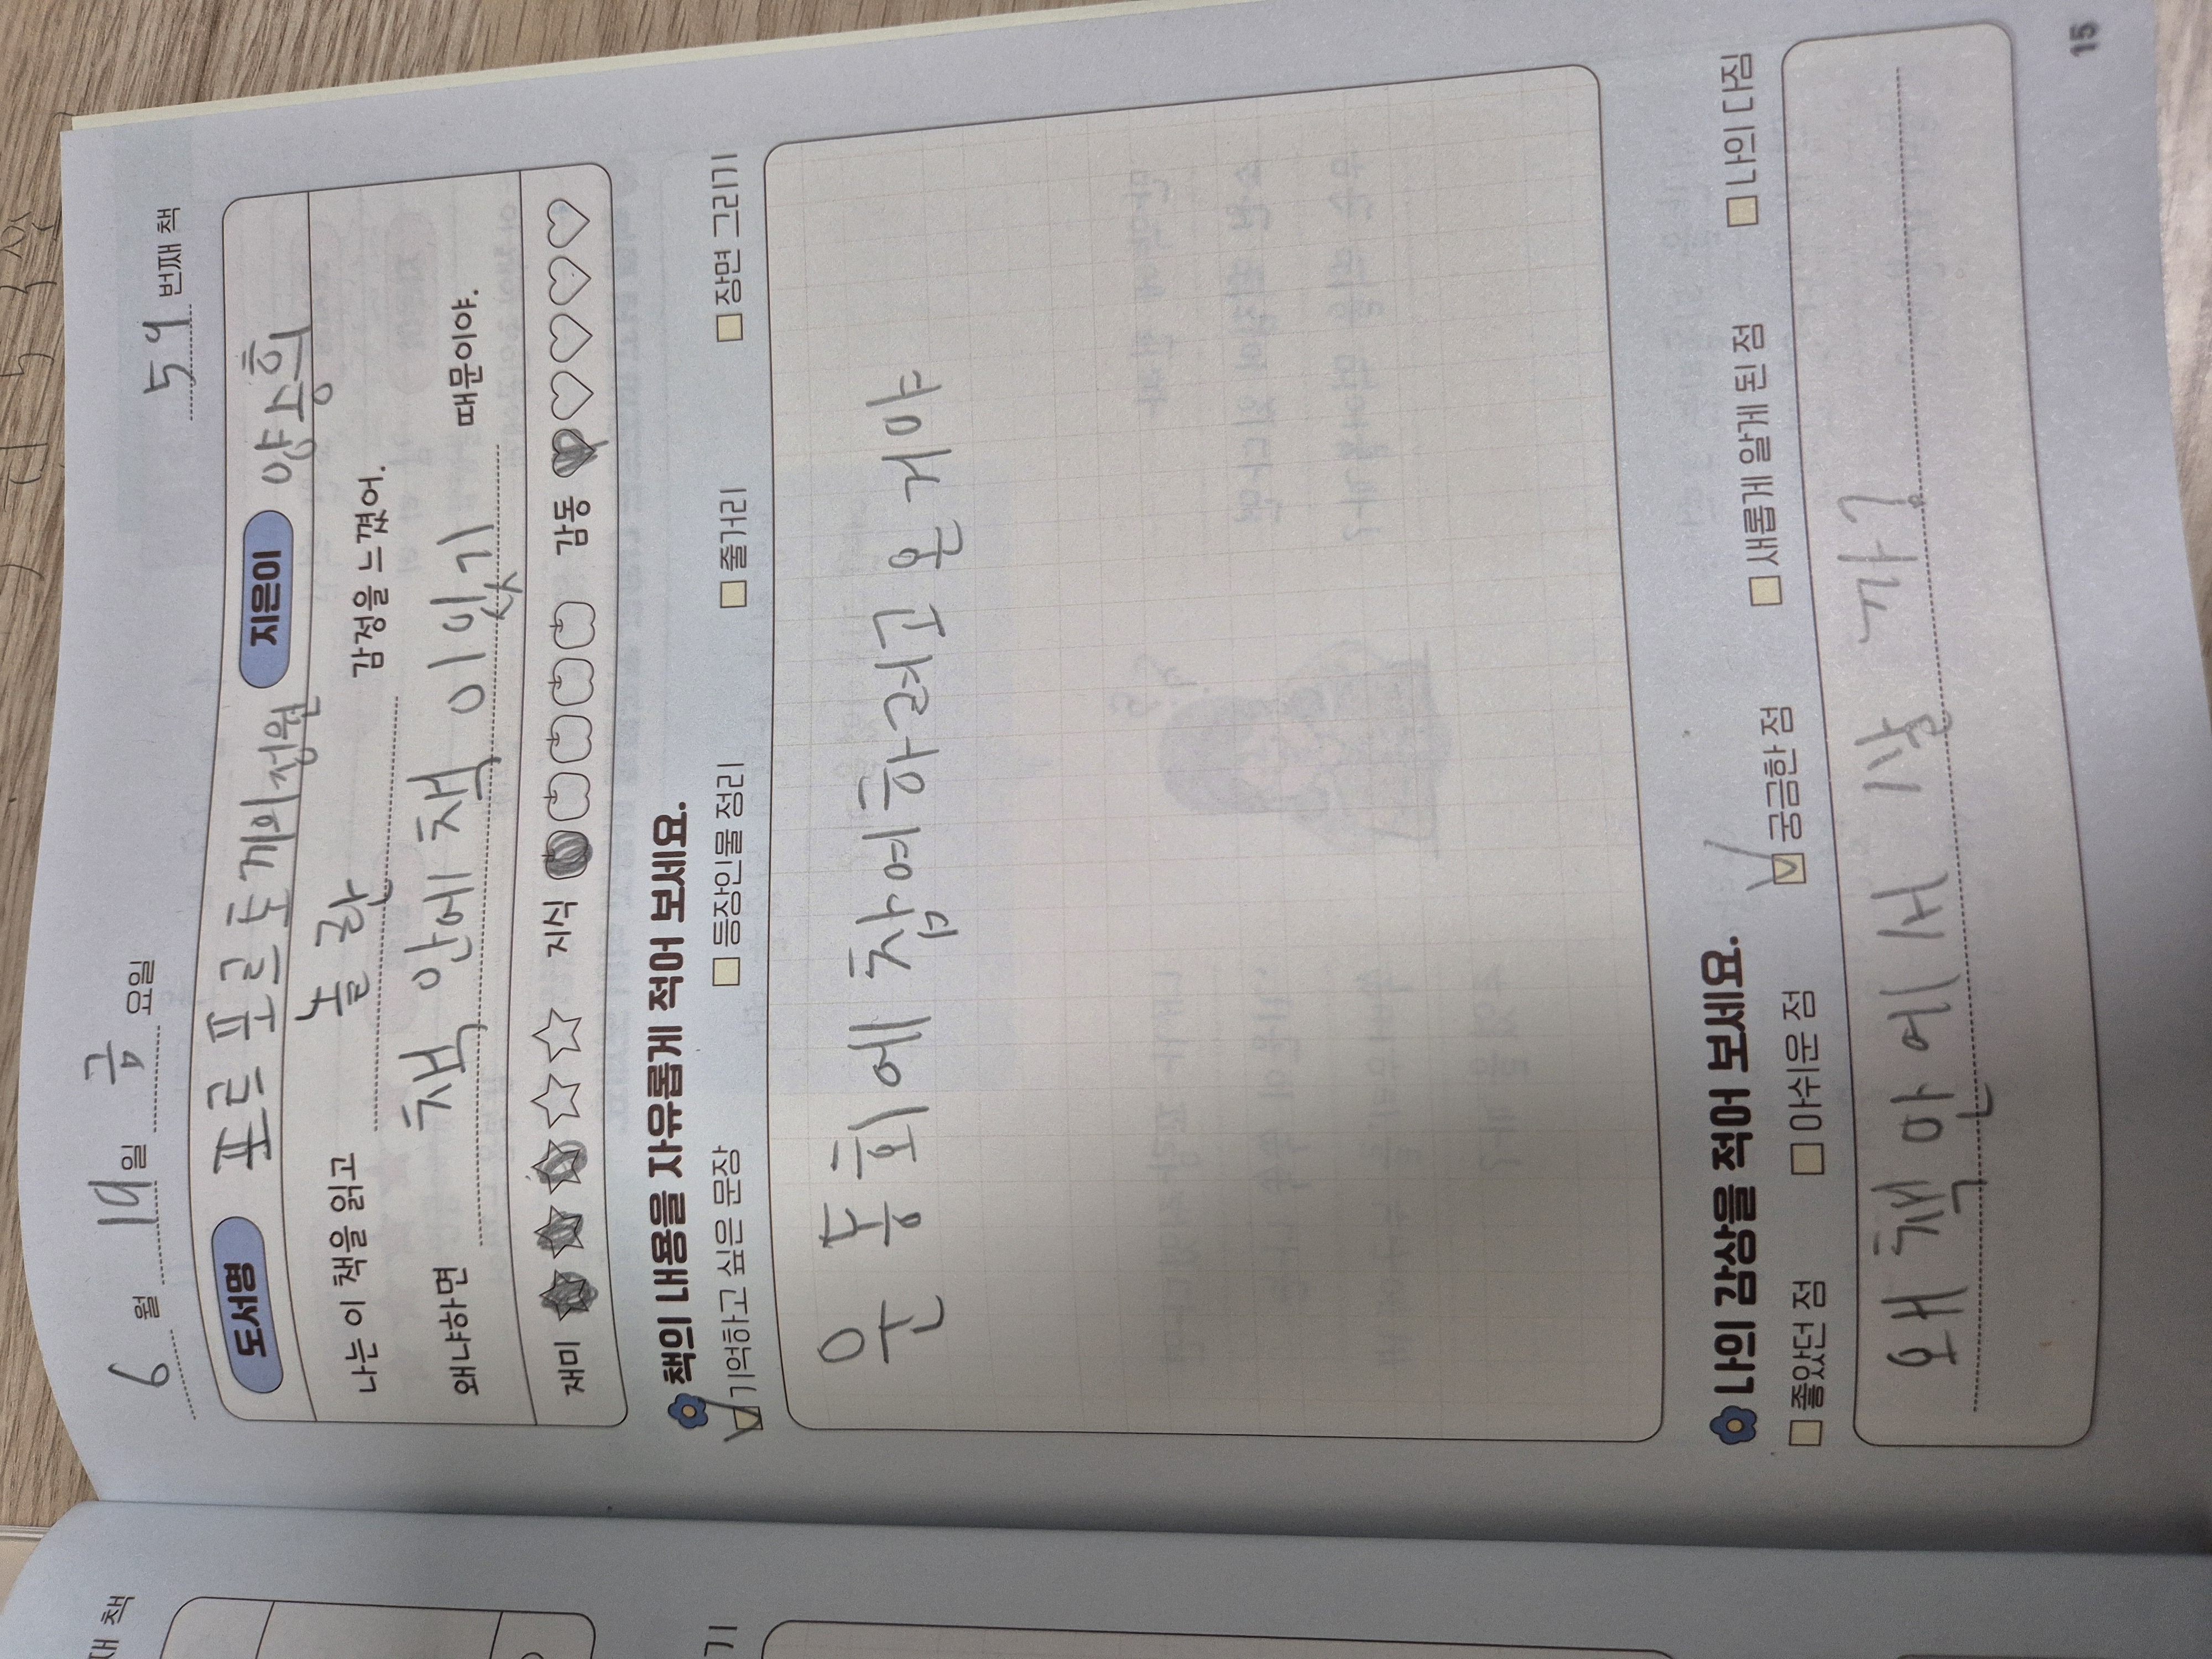 6 월 19 일 금 요일 59 번째 책
도서명 포른 포른 토끼의 정원 지은이 양승희
나는 이 책을 읽고 놀란 감정을 느꼈어.
왜냐하면 책 안에 책이 있기 때문이야.
재미 지식 감동
책의 내용을 자유롭게 적어 보세요.
기억하고 싶은 문장 등장인물 정리 줄거리 장면 그리기
운동회에 참여하려고 온 거야
나의 감상을 적어 보세요.
좋았던 점 아쉬운 점 궁금한 점 새롭게 알게 된 점 나의 다짐
왜 책 안에서 살까?
15
째 책
기